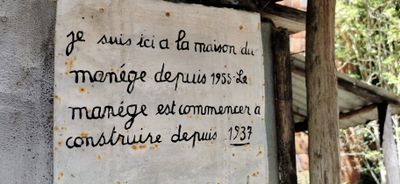 je suis ici a la maison du
manége depuis 1955. Le
manége est commencer a
construise depuis 1937